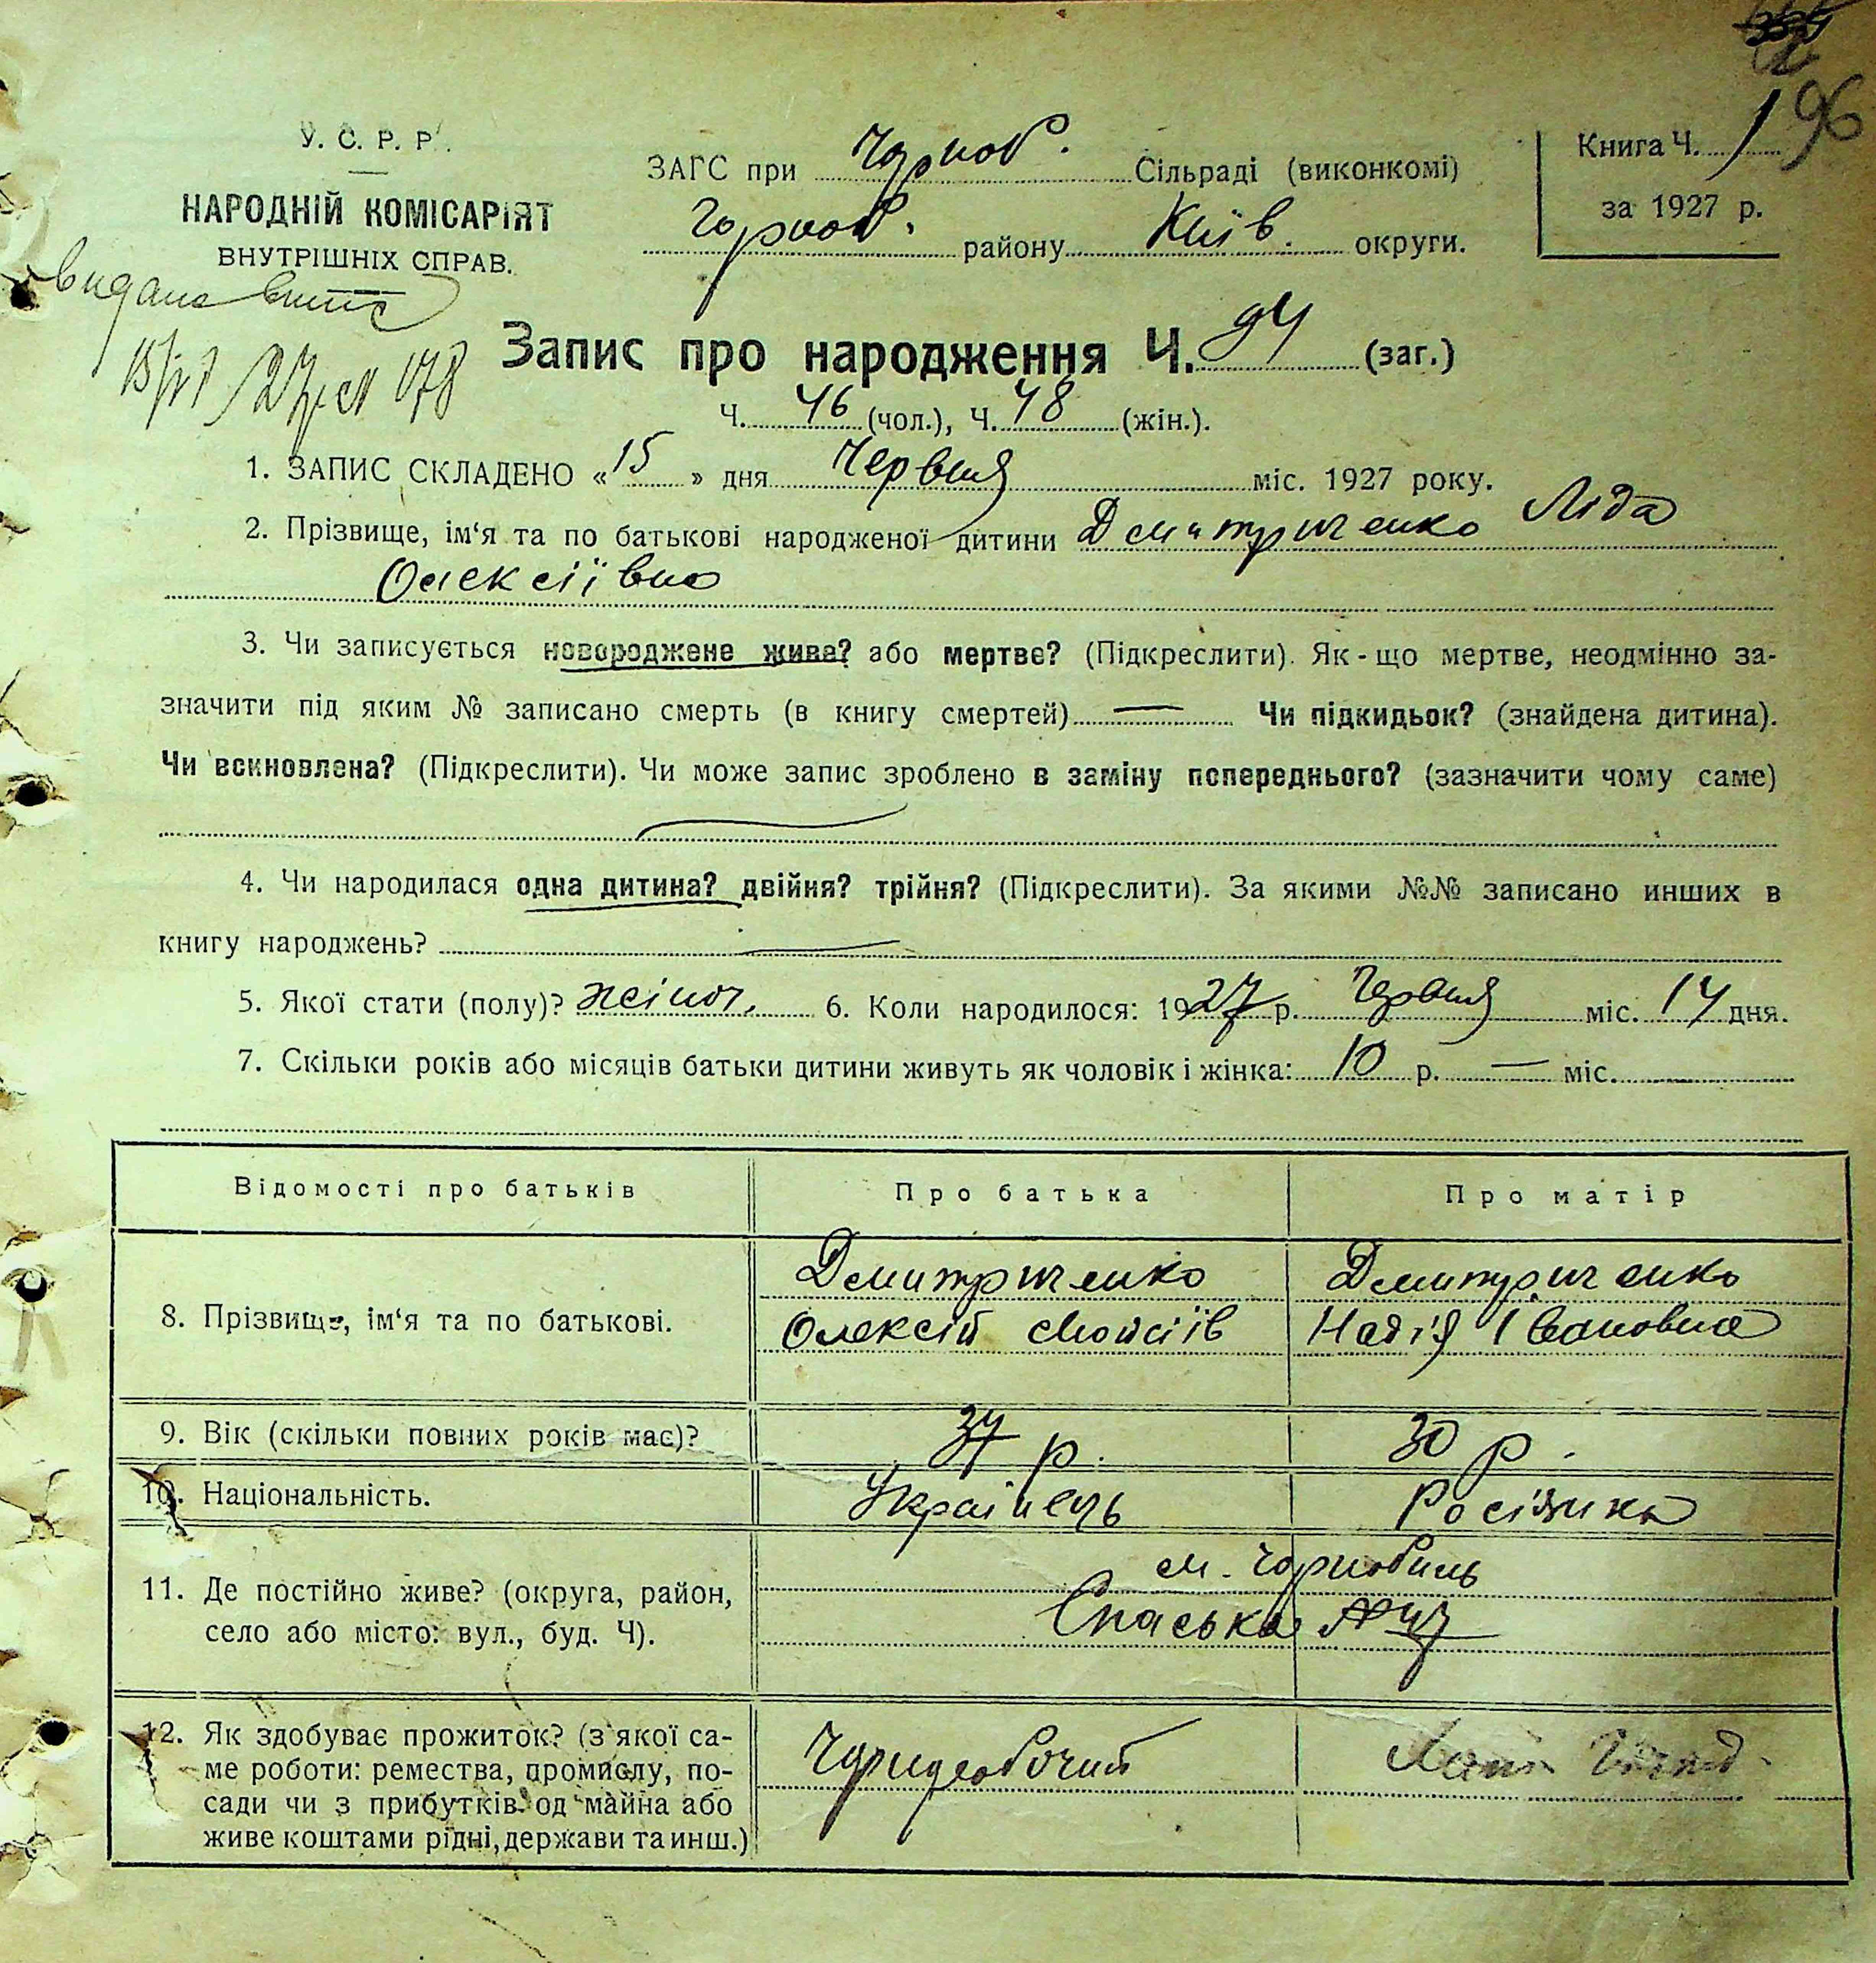 96
У. С. Р. Р.
НАРОДНІЙ КОМІСАРІЯТ
ВНУТРІШНІХ СПРАВ.
ЗАГС при Чорноб. Сільраді (виконкомі)
Чорноб. району Київ. округи.
Книга Ч. 1
за 1927 р.
видана
Запис про народження Ч. 94 (заг.)
Ч. 46 (чол.), Ч. 48 (жін.).
1. ЗАПИС СКЛАДЕНО « 15 » дня Червня міс. 1927 року.
2. Прізвище, ім‘я та по батькові народженої дитини Дмитриченко Ліда
Олексіївна
3. Чи записується новороджене живе? або мертве? (Підкреслити). Як-що мертве, неодмінно за-
значити під яким № записано смерть (в книгу смертей) — Чи підкидьок? (знайдена дитина).
Чи всиновлена? (Підкреслити). Чи може запис зроблено в заміну попереднього? (зазначити чому саме)
4. Чи народилася одна дитина? двійня? трійня? (Підкреслити). За якими №№ записано инших в
книгу народжень? —
5. Якої стати (полу)? жіноч. 6. Коли народилося: 1927 р. Червня міс. 14 дня.
7. Скільки років або місяців батьки дитини живуть як чоловік і жінка: 10 р. — міс.
Відомості про батьків Про батька Про матір
8. Прізвище, ім‘я та по батькові.
Дмитриченко Дмитриченко
Олексій Мойсіїв Надія Івановна
9. Вік (скільки повних років має)? 37 р. 30 р.
10. Національність. Українець Росіянка
11. Де постійно живе? (округа, район,
село або місто: вул., буд. Ч).
м. Чорнобиль
Спаська № 47
12. Як здобуває прожиток? (з якої са-
ме роботи: ремества, промислу, по-
сади чи з прибутків од майна або
живе коштами рідні, держави та инш.)
Чорноробочий